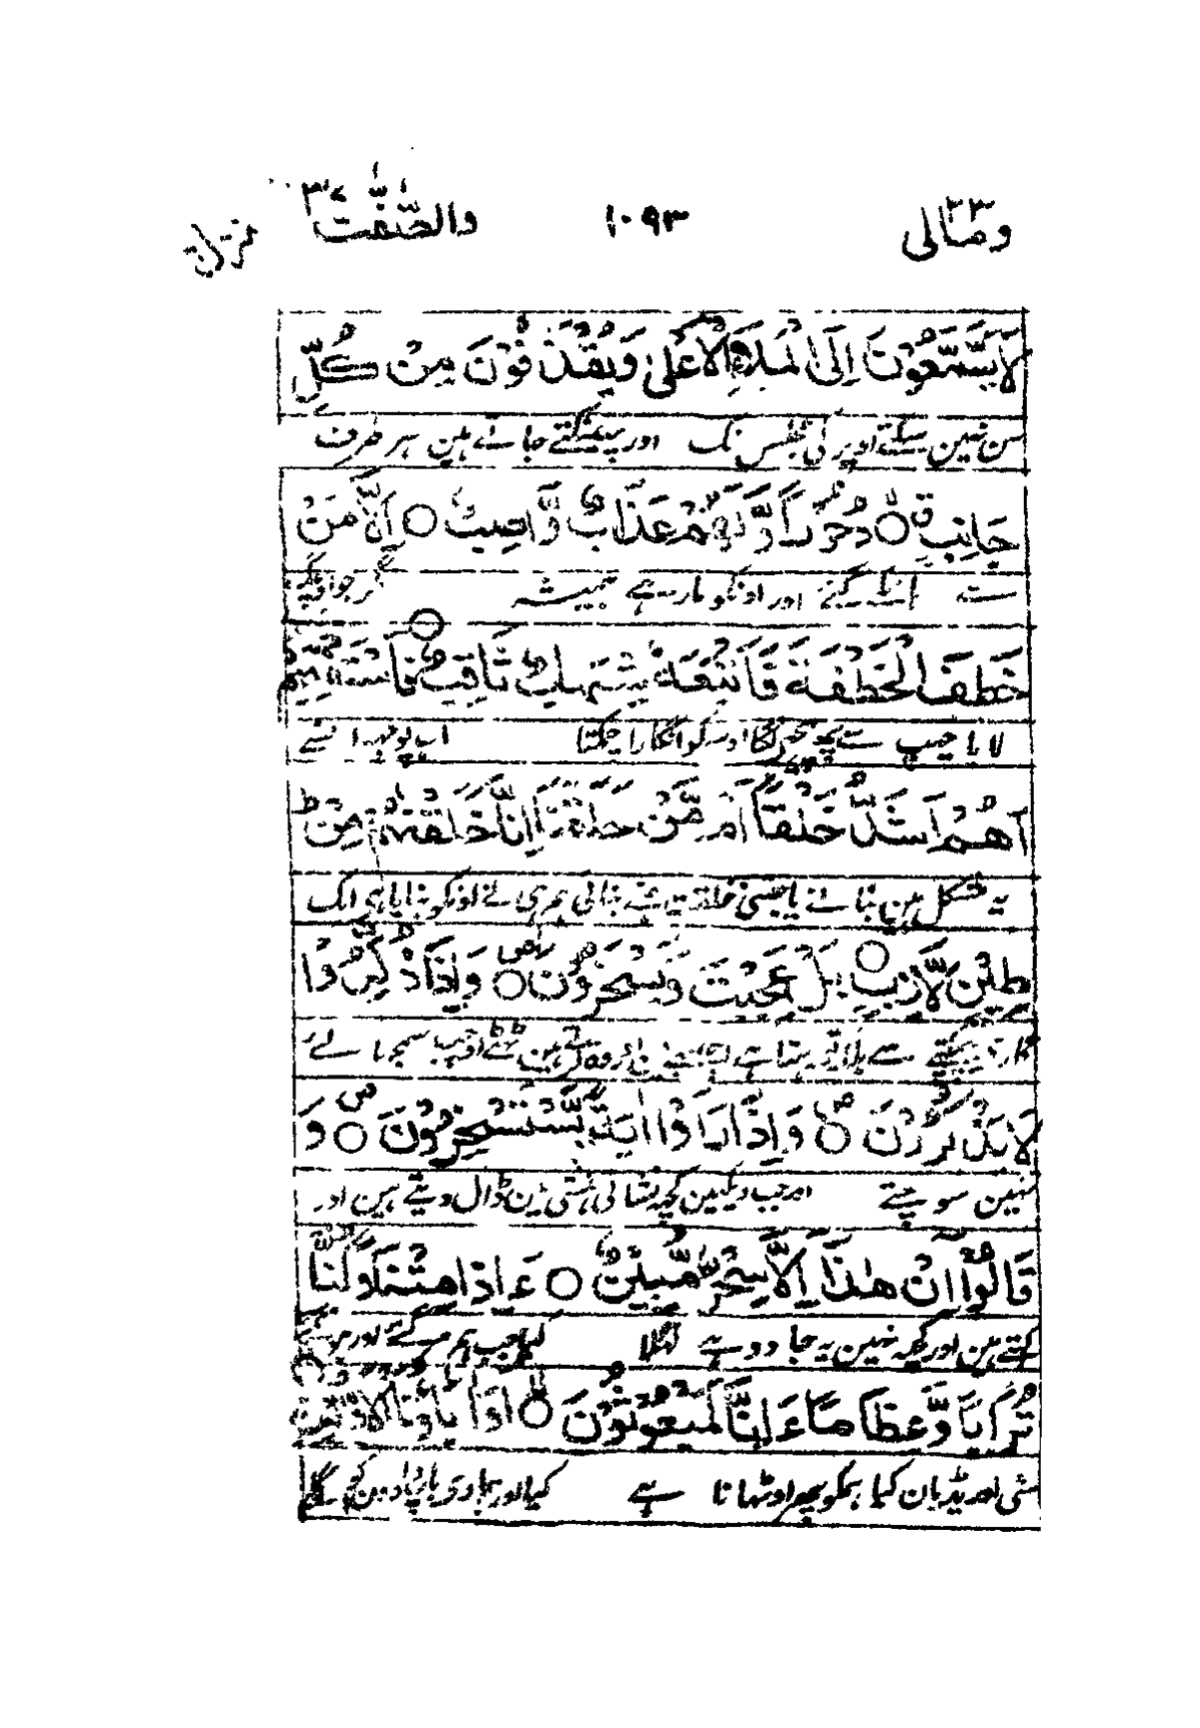 ومالی ۲۳ ۱۰۹۳ والصّٰٓفّٰت ۳۷ منزل
لَا يَسَّمَّعُوْنَ اِلَى الْمَلَاِ الْاَعْلٰى وَيُقْذَفُوْنَ مِنْ كُلِّ
سن نہین سکتے اوپر کی مجلس تک اور پھینکے جاتے ہین ہر طرف
جَانِبٍ ○ دُحُوْرًا وَّلَهُمْ عَذَابٌ وَّاصِبٌ ○ اِلَّا مَنْ
سے اور اونکو مار ہے ہمیشہ مگر جو اوچک
خَطِفَ الْخَطْفَةَ فَاَتْبَعَهٗ شِهَابٌ ثَاقِبٌ ○ فَاسْتَفْتِهِمْ
لایا جھپ سے پھر پیچھے لگا اوسکو انگارا چمکتا اب پوچھہ اونسے
اَهُمْ اَشَدُّ خَلْقًا اَمْ مَّنْ خَلَقْنَا اِنَّا خَلَقْنٰهُمْ مِّنْ
یہ مشکل ہین بنانے یا جتنی خلقت ہمنے بنائی ہم ہی نے اونکو بنایا ہی ایک
طِيْنٍ لَّازِبٍ ○ بَلْ عَجِبْتَ وَيَسْخَرُوْنَ ○ وَاِذَا ذُكِّرُوْا
گارے چپکتے سے بلکہ تو رہتا ہے اچنبھے مین اور وہ کرتے ہین ٹھٹھے اور جب سمجھائے
لَا يَذْكُرُوْنَ ○ وَاِذَا رَاَوْا اٰيَةً يَّسْتَسْخِرُوْنَ ○ وَ
نہین سوچتے اور جب دیکہین کچہ نشانی ہنسی مین ڈال دیتے ہین اور
قَالُوْٓا اِنْ هٰذَآ اِلَّا سِحْرٌ مُّبِيْنٌ ○ ءَاِذَا مِتْنَا وَكُنَّا
کہتے ہین اور کچہ نہین یہ جادو ہے کھلا کیا جب ہم مر گئے اور ہو گئے
تُرَابًا وَّعِظَامًا ءَاِنَّا لَمَبْعُوْثُوْنَ ○ اَوَاٰبَآؤُنَا الْاَوَّلُوْنَ
مٹی اور ہڈیان کیا ہمکو پھر اوٹھانا ہے کیا اور ہماری باپ دادون کو اگلے